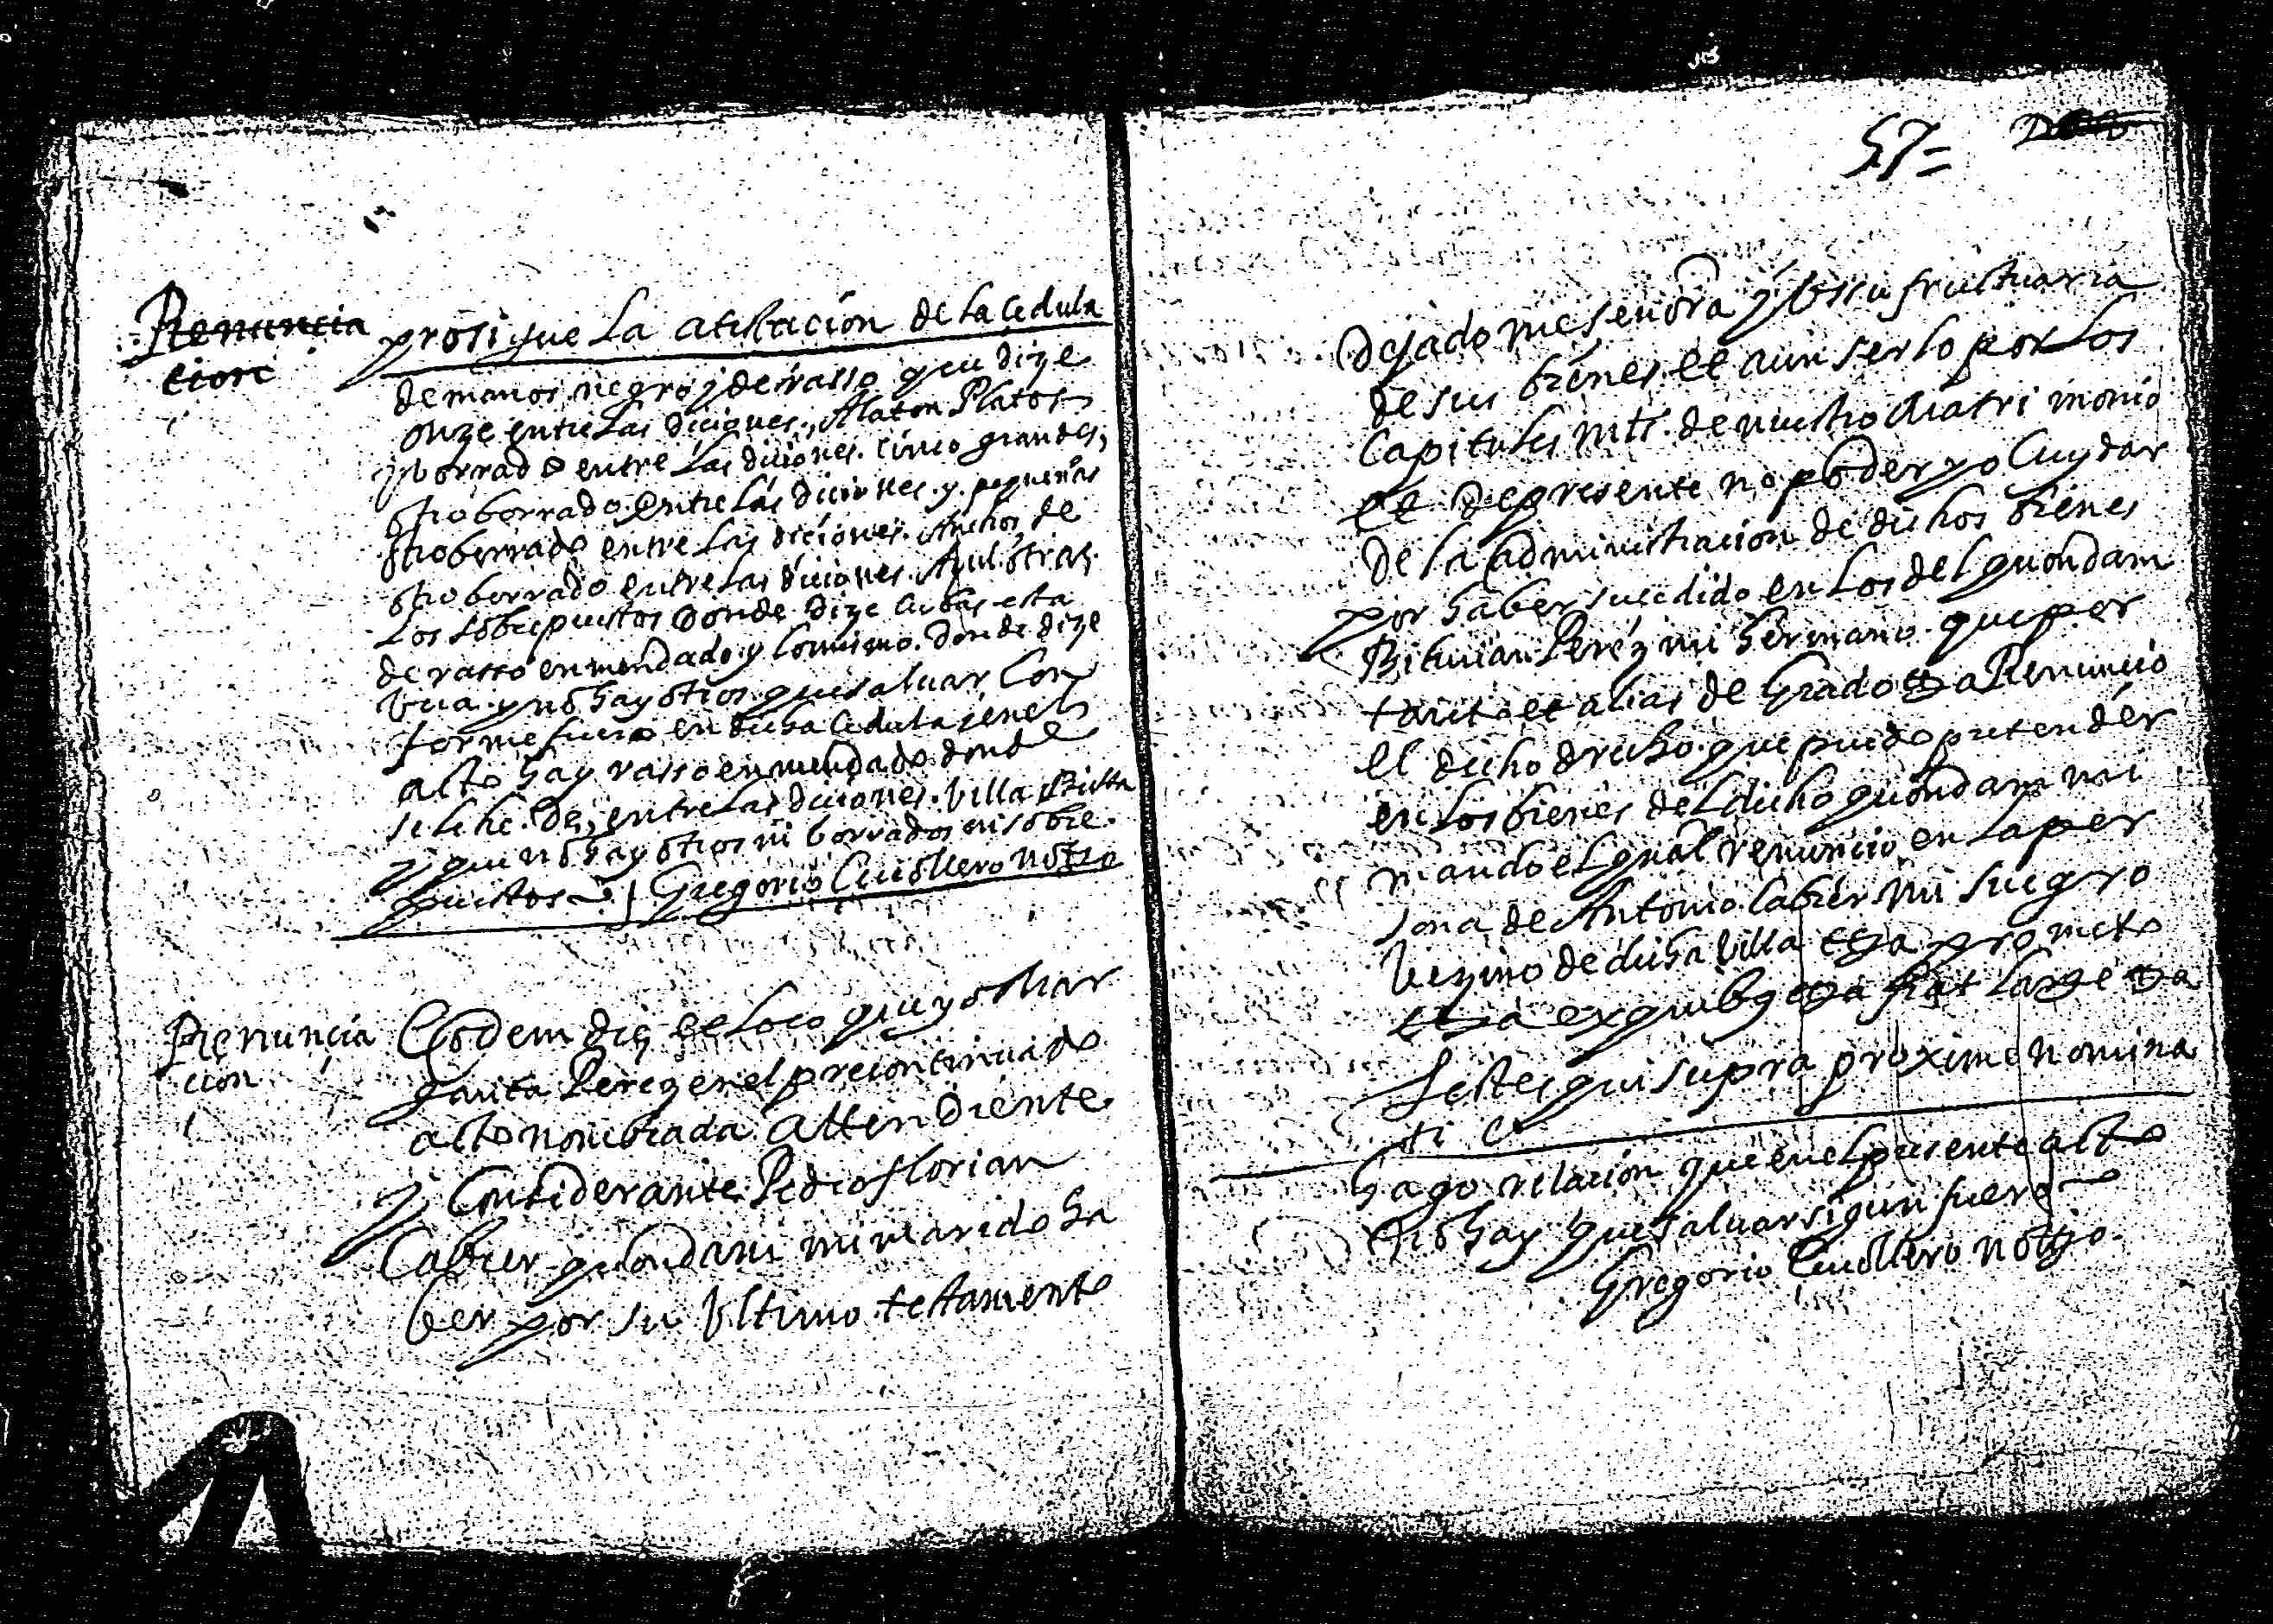 Renuncia
cion
prosigue la atestacion de la cedula
de manos negro, y de rasso que dize
onze entre las diciones. Alaton Platos
y borrado entre las diciones. Cinco grandes,
otro borrado entre las diciones. y. pequeñas
otro borrado entre las diciones. Anchos de
otro borrado entre las diciones. Azul. otras.
Los sobrepuestos donde dize cubas esta
de rasso enmendado y lo mismo. donde dize
bua. y no hay otros que saluar con
forme fuero en dicha cedula, i en el
acto hay rasso enmendado donde
se lehe. De, entre las diciones. Villa
y que no hay otros ni borrados ni sobre
puestos Gregorio Cuollero notro
Renuncia
cion
Eodem die et loco que yo Mar
garita Perez en el precontinuado
acto nombrada Attendiente
y Considerante Pedro Florian
Cabrer quondam mi marido ha
ber por su Vltimo testamento
57=
Dejadome señora y Vssufructuaria
de sus bienes et aun serlo por los
Capitules mts. de nuestro Matrimonio
et de presente no poder yo Cuydar
De la administracion de dichos bienes
por haber sucedido en los del quondam
Perez mi hermano. que por
tanto et alias de Grado etta Renuncio
el dicho drecho. que puedo pretender
en los bienes del dicho quondam mi
marido el qual renuncio en la per
sona de Antonio Cabrer mi suegro
Vezino de dicha Villa etta prometo
etta ex quibus etta fiat large etta
Testes qui supra proxime nomina
ti
Hago relacion que en el presente acto
no hay que saluar sigun fuero
Gregorio Cuollero notro